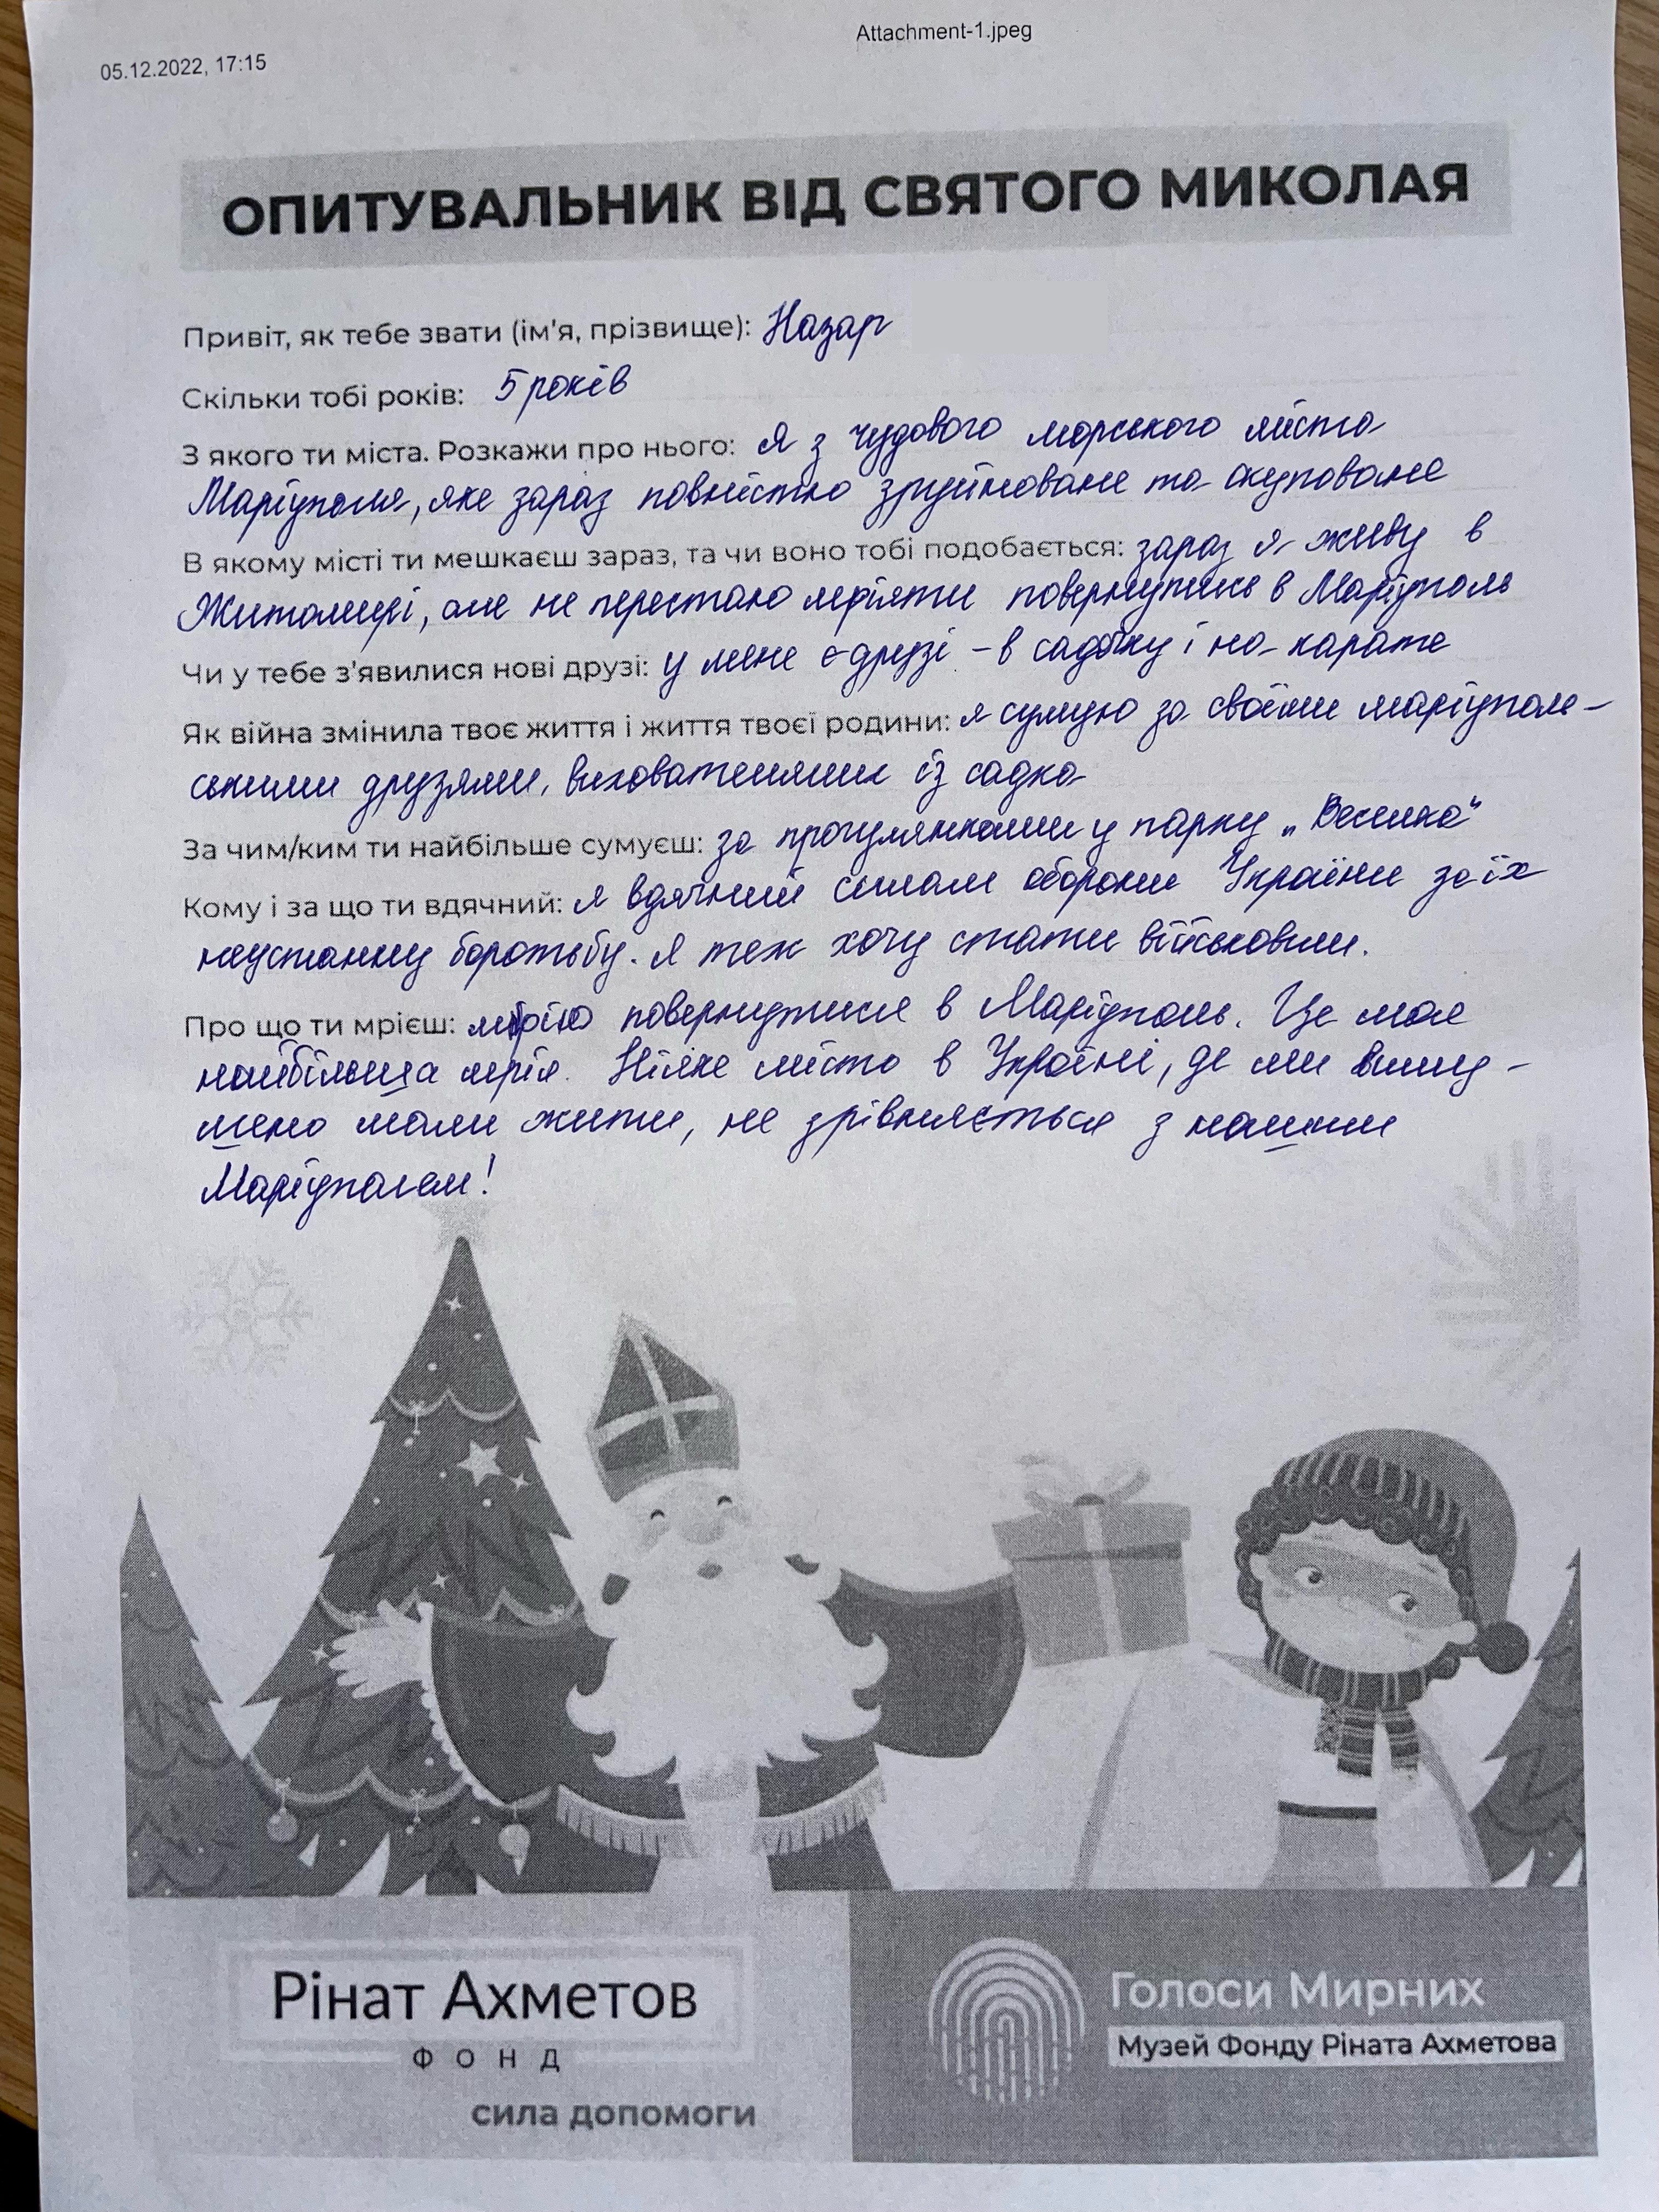 Attachment-1.jpeg
05.12.2022, 17:15
ОПИТУВАЛЬНИК ВІД СВЯТОГО МИКОЛАЯ
Привіт, як тебе звати (ім'я, прізвище): Назар
Скільки тобі років: 5 років
З якого ти міста. Розкажи про нього: я з чудового морського міста
Маріуполя, яке зараз повністю зруйноване та окуповане
В якому місті ти мешкаєш зараз, та чи воно тобі подобається: зараз я живу в
Житомирі, але не перестаю мріяти повернутись в Маріуполь
Чи у тебе з'явилися нові друзі: у мене є друзі - в садочку і на карате
Як війна змінила твоє життя і життя твоєї родини: я сумую за своїми маріуполь-
ськими друзями, вихователями із садка
За чим/ким ти найбільше сумуєш: за прогулянками у парку „Веселка"
Кому і за що ти вдячний: я вдячний силам оборони України за їх
неустанну боротьбу. Я теж хочу стати військовим.
Про що ти мрієш: мрію повернутися в Маріуполь. Це моя
найбільша мрія. Ніяке місто в Україні, де ми виму-
шено мали жити, не зрівняється з нашим
Маріуполем!
Рінат Ахметов
ФОНД
сила допомоги
Голоси Мирних
Музей Фонду Ріната Ахметова